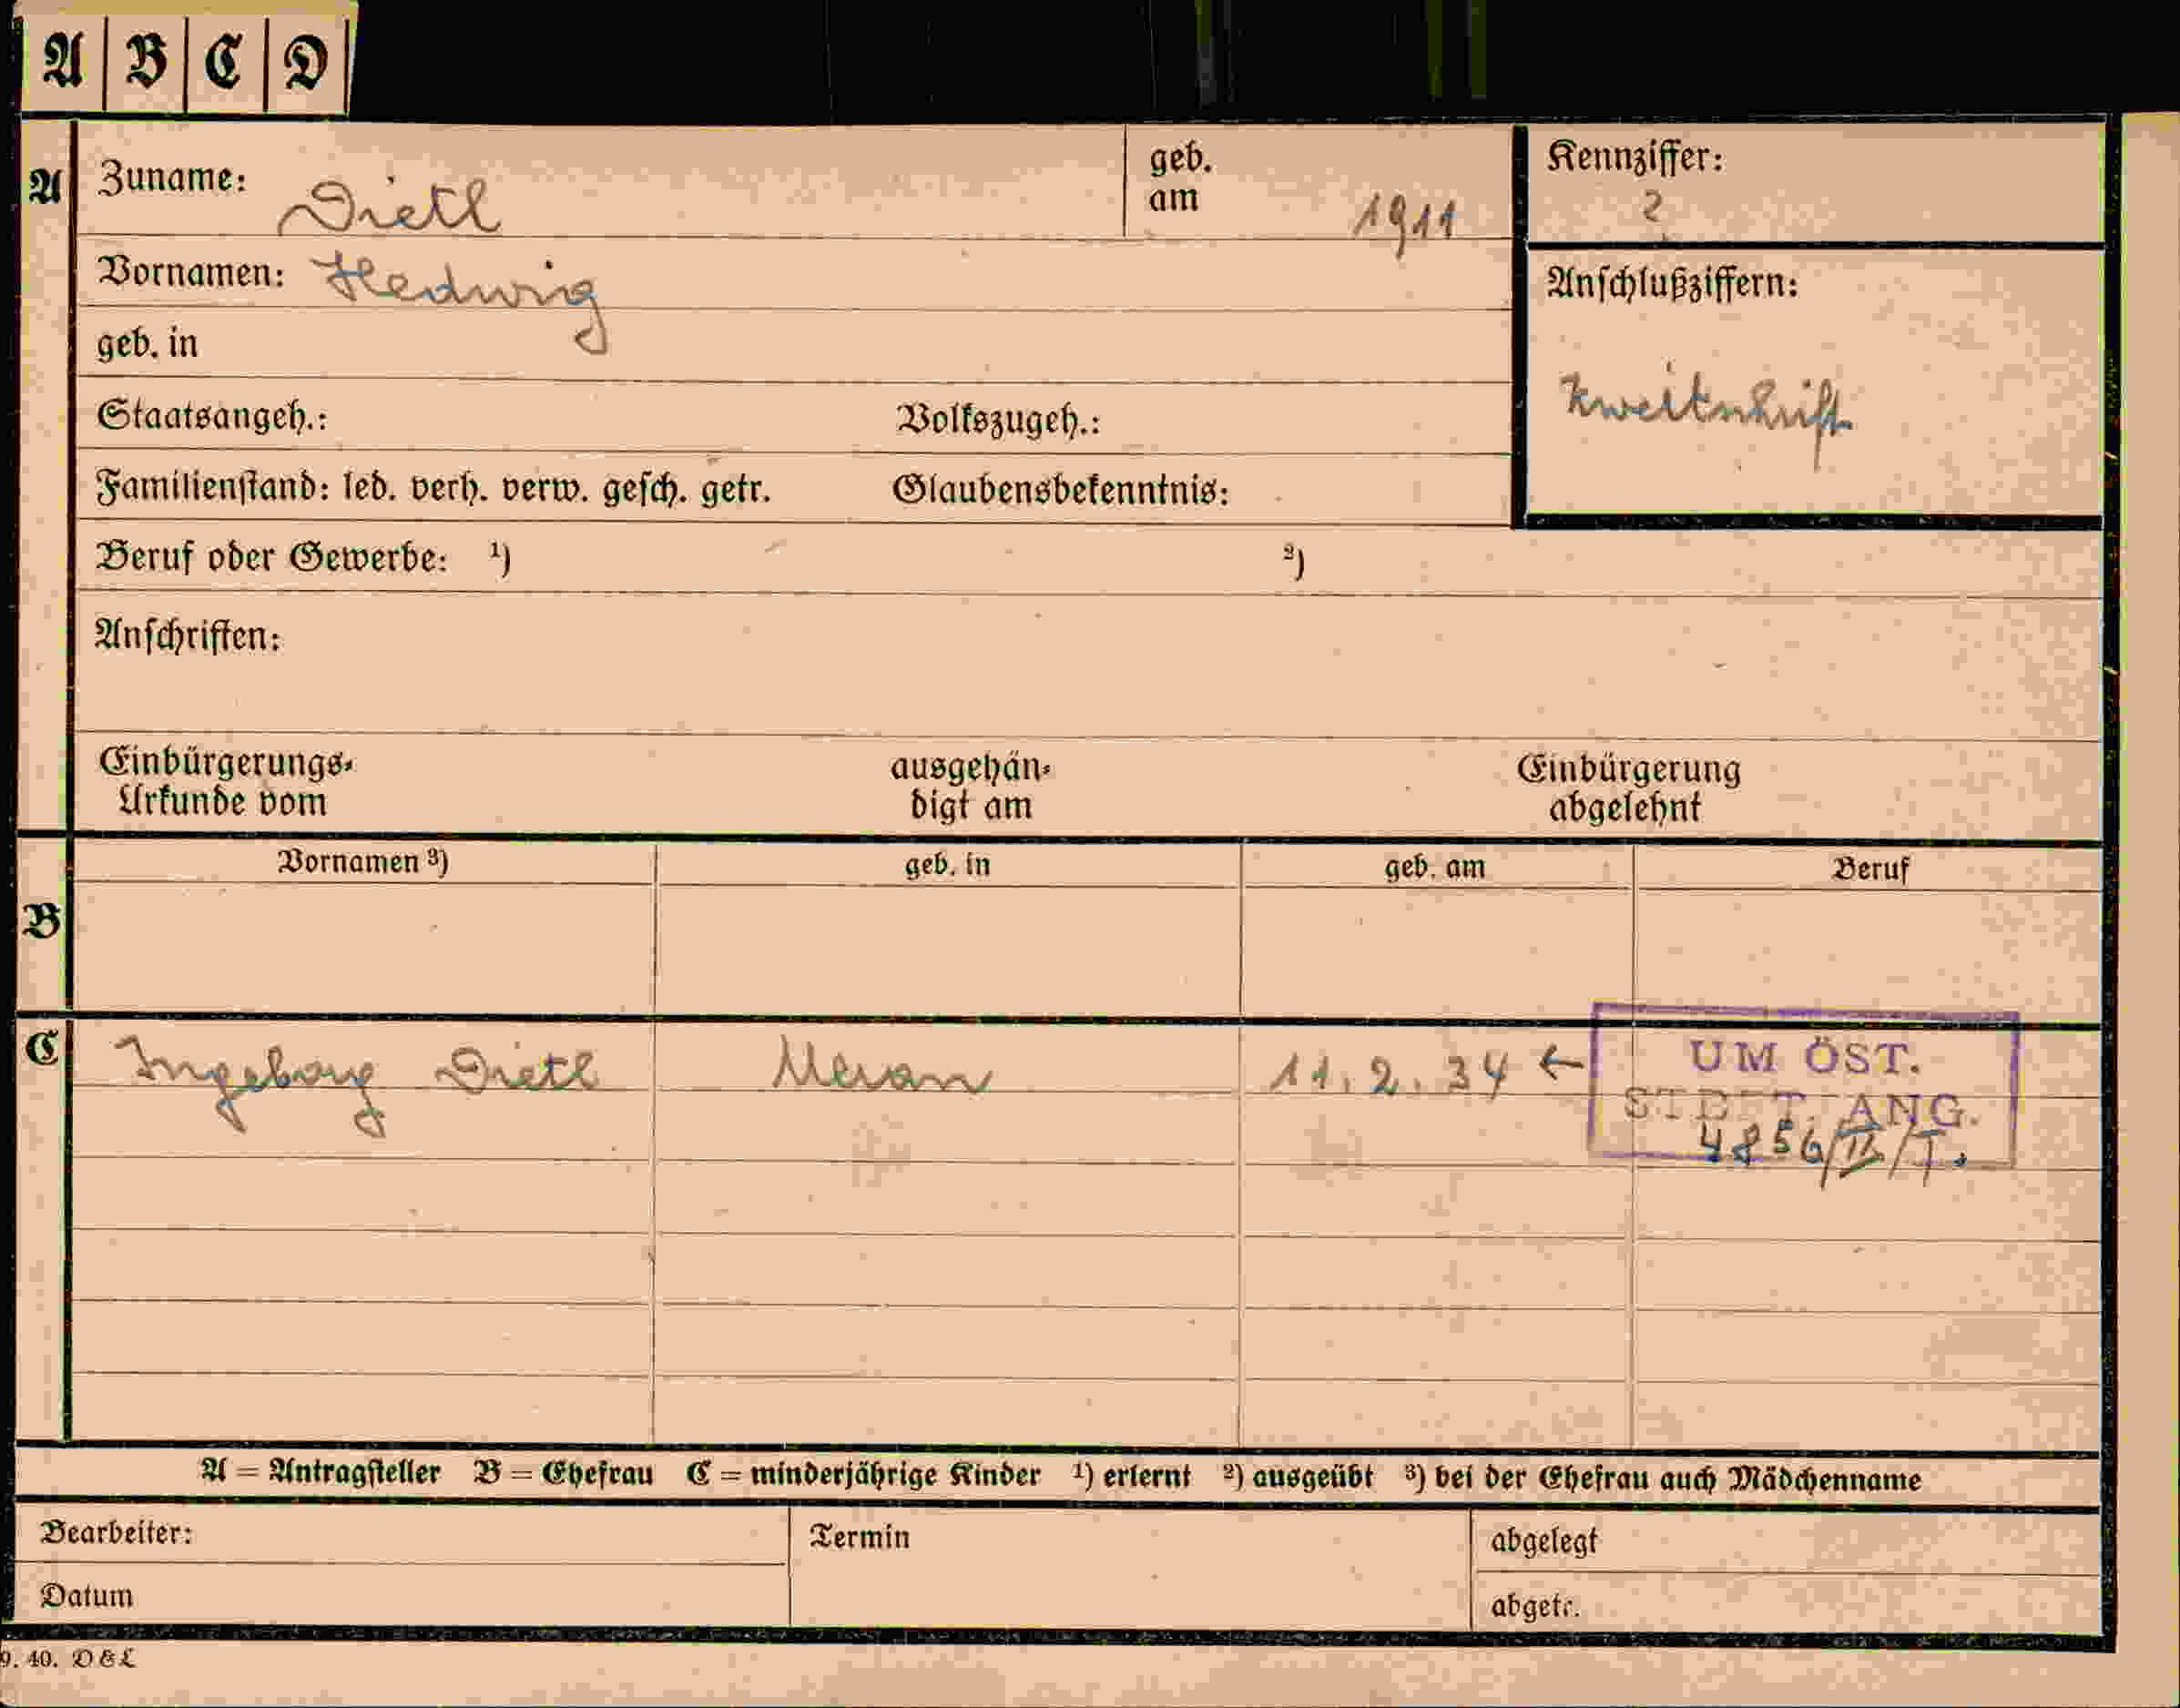 A B C D
A Zuname: Dietl geb. am 1911 Kennziffer: ?
Vornamen: Hedwig
geb. in
Anschlußziffern:
Zweitschrift
Staatsangeh.: Volkszugeh.:
Familienstand: led. verh. verw. gesch. getr. Glaubensbekenntnis:
Beruf oder Gewerbe: ¹) ²)
Anschriften:
Einbürgerungs- ausgehän- Einbürgerung
Urkunde vom digt am abgelehnt
Vornamen ³) geb. in geb. am Beruf
B
C Ingeborg Dietl Meran 11.2.34 ← UM ÖST.
ANG.
4856/
A = Antragsteller B = Ehefrau C = minderjährige Kinder ¹) erlernt ²) ausgeübt ³) bei der Ehefrau auch Mädchenname
Bearbeiter: Termin abgelegt
Datum abgetr.
9. 40. D&L